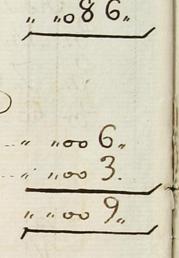 „ „o86„
„ „oo6„
„ „oo3.
„ „oo9„